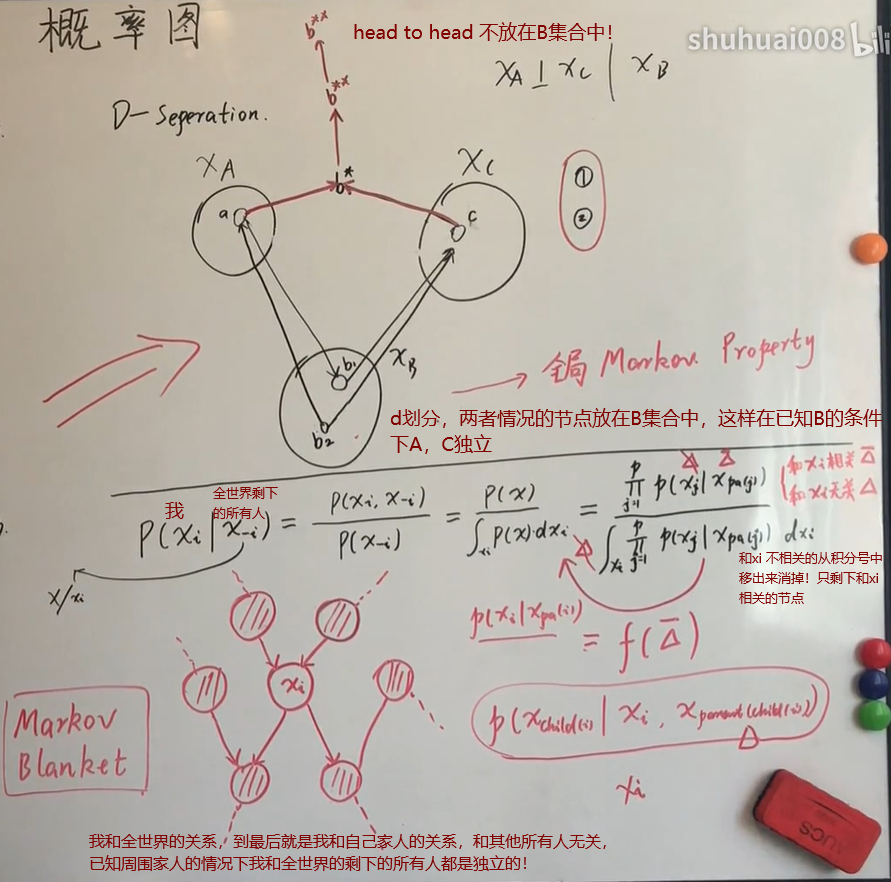 概率图
b**
head to head 不放在B集合中！
shuhuai008 bili
b**
X_A ⊥ X_C | X_B
D-Seperation.
X_A
b*
X_C
①
a
c
②
b₁
X_B
b₂
全局 Markov Property
d划分，两者情况的节点放在B集合中，这样在已知B的条件
下A，C独立
我
全世界剩下
的所有人
P(x_i | x_{-i}) = P(x_i, x_{-i}) / P(x_{-i}) = P(x) / ∫_{x_i} P(x)·dx_i = ∏_{j=1}^{p} p(x_j | x_{pa(j)}) / ∫_{x_i} ∏_{j=1}^{p} p(x_j | x_{pa(j)}) dx_i
和x_i相关 Δ̄
和x_i无关 Δ
x/x_i
和xi 不相关的从积分号中
移出来消掉！只剩下和xi
相关的节点
p(x_i | x_{pa(i)})
= f(Δ̄)
x_i
Markov
Blanket
p(x_{child(i)} | x_i, x_{parent(child(i))})
Δ
x_i
AUCS
我和全世界的关系，到最后就是我和自己家人的关系，和其他所有人无关，
已知周围家人的情况下我和全世界的剩下的所有人都是独立的！